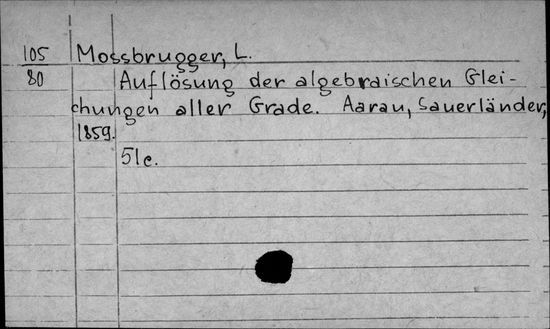 105 Mossbrugger, L.
80 Auflösung der algebraischen Glei-
chungen aller Grade. Aarau, Sauerländer,
1859.
51c.